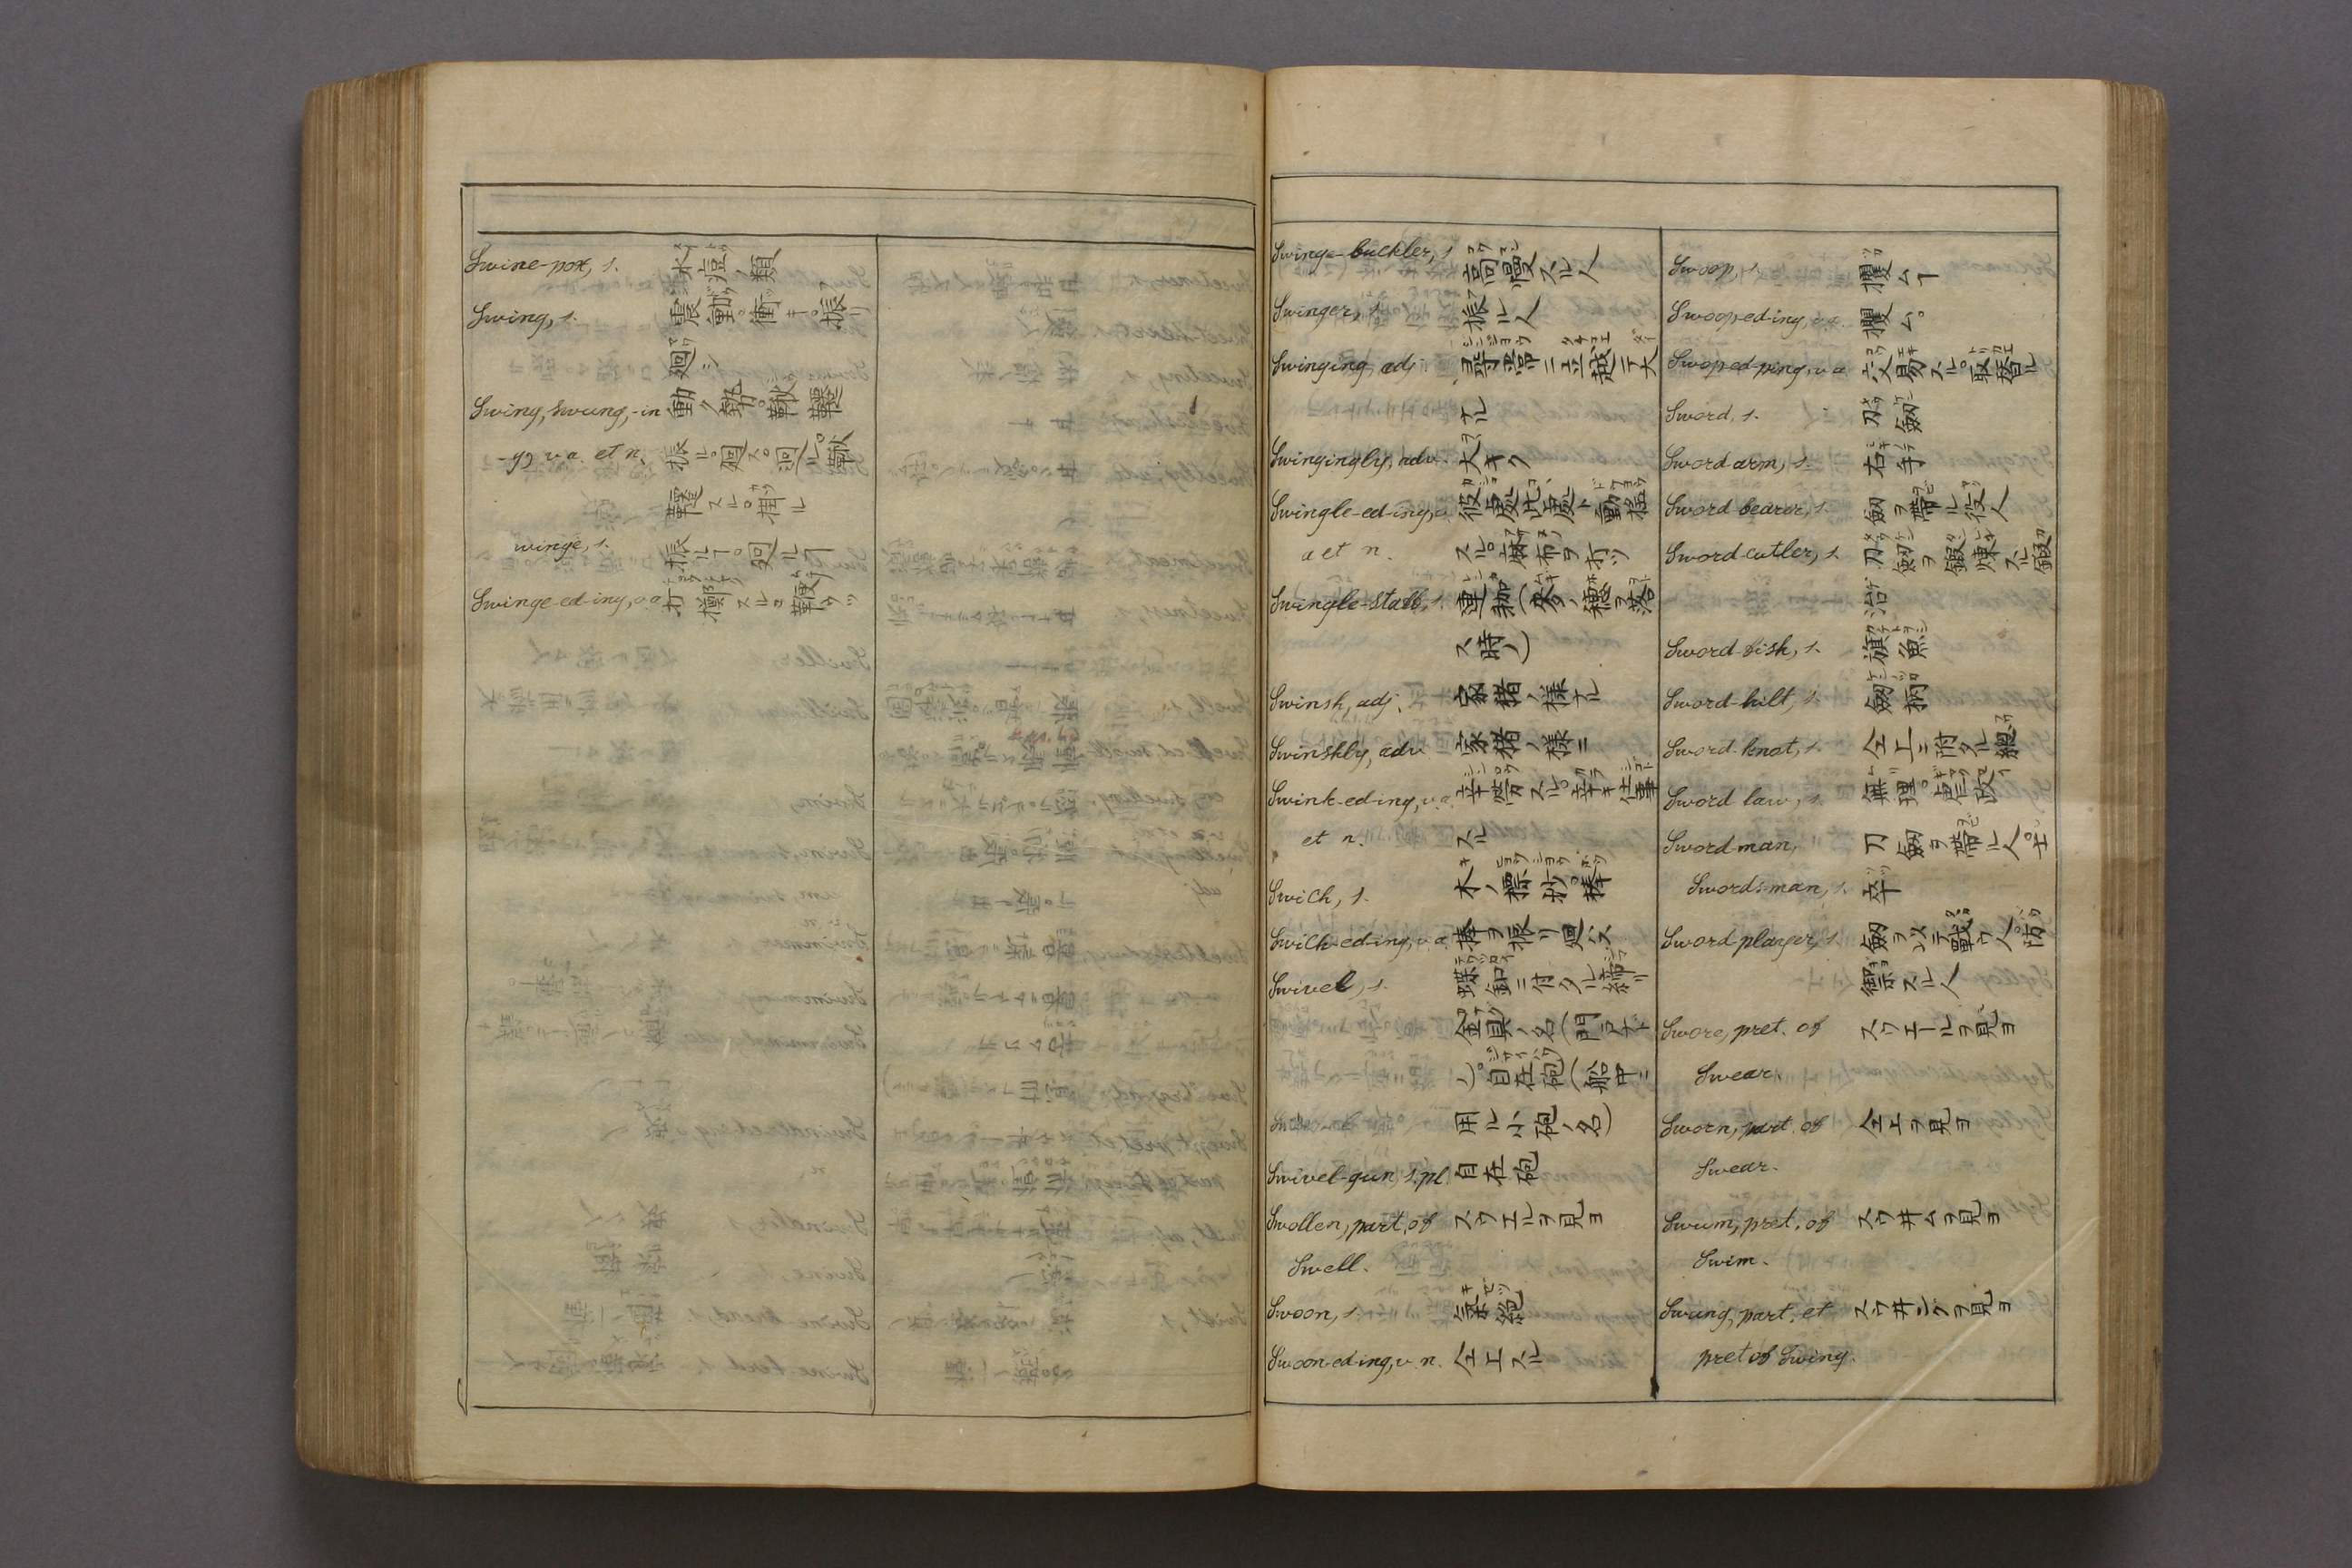 Swine-pox, s. 水痘ノ類
Swing, s. 震動。衝キ。振リ
廻シ
Swing, swung, -in 動ク錘。鞦韆
-g, v.a. et n. 振ル。廻ス。廻ル。鞦
韆スル。掛ル
winge, s. 振ルヿ。廻ルヿ
Swinge-ed-ing, v.a. 打擲スル。鞭ウツ
Swinge-buckler, s. 高慢スル人
Swinger, s. 振ル人
Swinging, adj. 尋常ニ立越テ大
ナル
Swingingly, adv. 大キク
Swingle-ed-ing, v. 彼處此處ト動揺
a et n. スル。麻布ヲ打ツ
Swingle-staff, s. 連枷(麥ノ穂ヲ落
ス時ノ)
Swinsh, adj. 家猪ノ様ナル
Swinshly, adv. 家猪ノ様ニ
Swink-ed-ing, v.a. 辛労スル。辛キ仕事
et n. スル
Swich, s. 木ノ標抄。棒
Swich-ed-ing, v.a. 棒ヲ振リ廻ス
Swivel, s. 蝶鉸ニ付タル締リ
金具ノ名(門戸ナド
ノ)。自在砲(船中ニ
用ル小砲ノ名)
Swivel-gun, s. pl. 自在砲
Swollen, part. of スウエルヲ見ヨ
Swell.
Swoon, s. 氣絶
Swoon-ed-ing, v.n. 仝上スル
Swoop, s. 攫ムヿ
Swoop-ed-ing, v.a. 攫ム。
Swop-ed-ping, v.a. 交易スル。取替ル
Sword, s. 刀劔
Sword arm, s. 右手
Sword-bearer, s. 劔ヲ帶ル役人
Sword-cutler, s. 刀劔ヲ鍛煉スル鍛
冶
Sword-fish, s. 旗魚
Sword-hilt, s. 劔柄
Sword-knot, s. 仝上ニ附タル總
Sword law, s. 無理。虐政
Sword man, 刀劔ヲ帶ル人。士
Swords-man, s. 卒
Sword-player, s. 劔ヲ以テ戰ウ人。防
禦スル人
Swore, pret. of スウエールヲ見ヨ
Swear.
Sworn, part. of 仝上ヲ見ヨ
Swear.
Swum, pret. of スウ井ムヲ見ヨ
Swim.
Swung, part. et スウ井ングヲ見ヨ
pret of Swing.